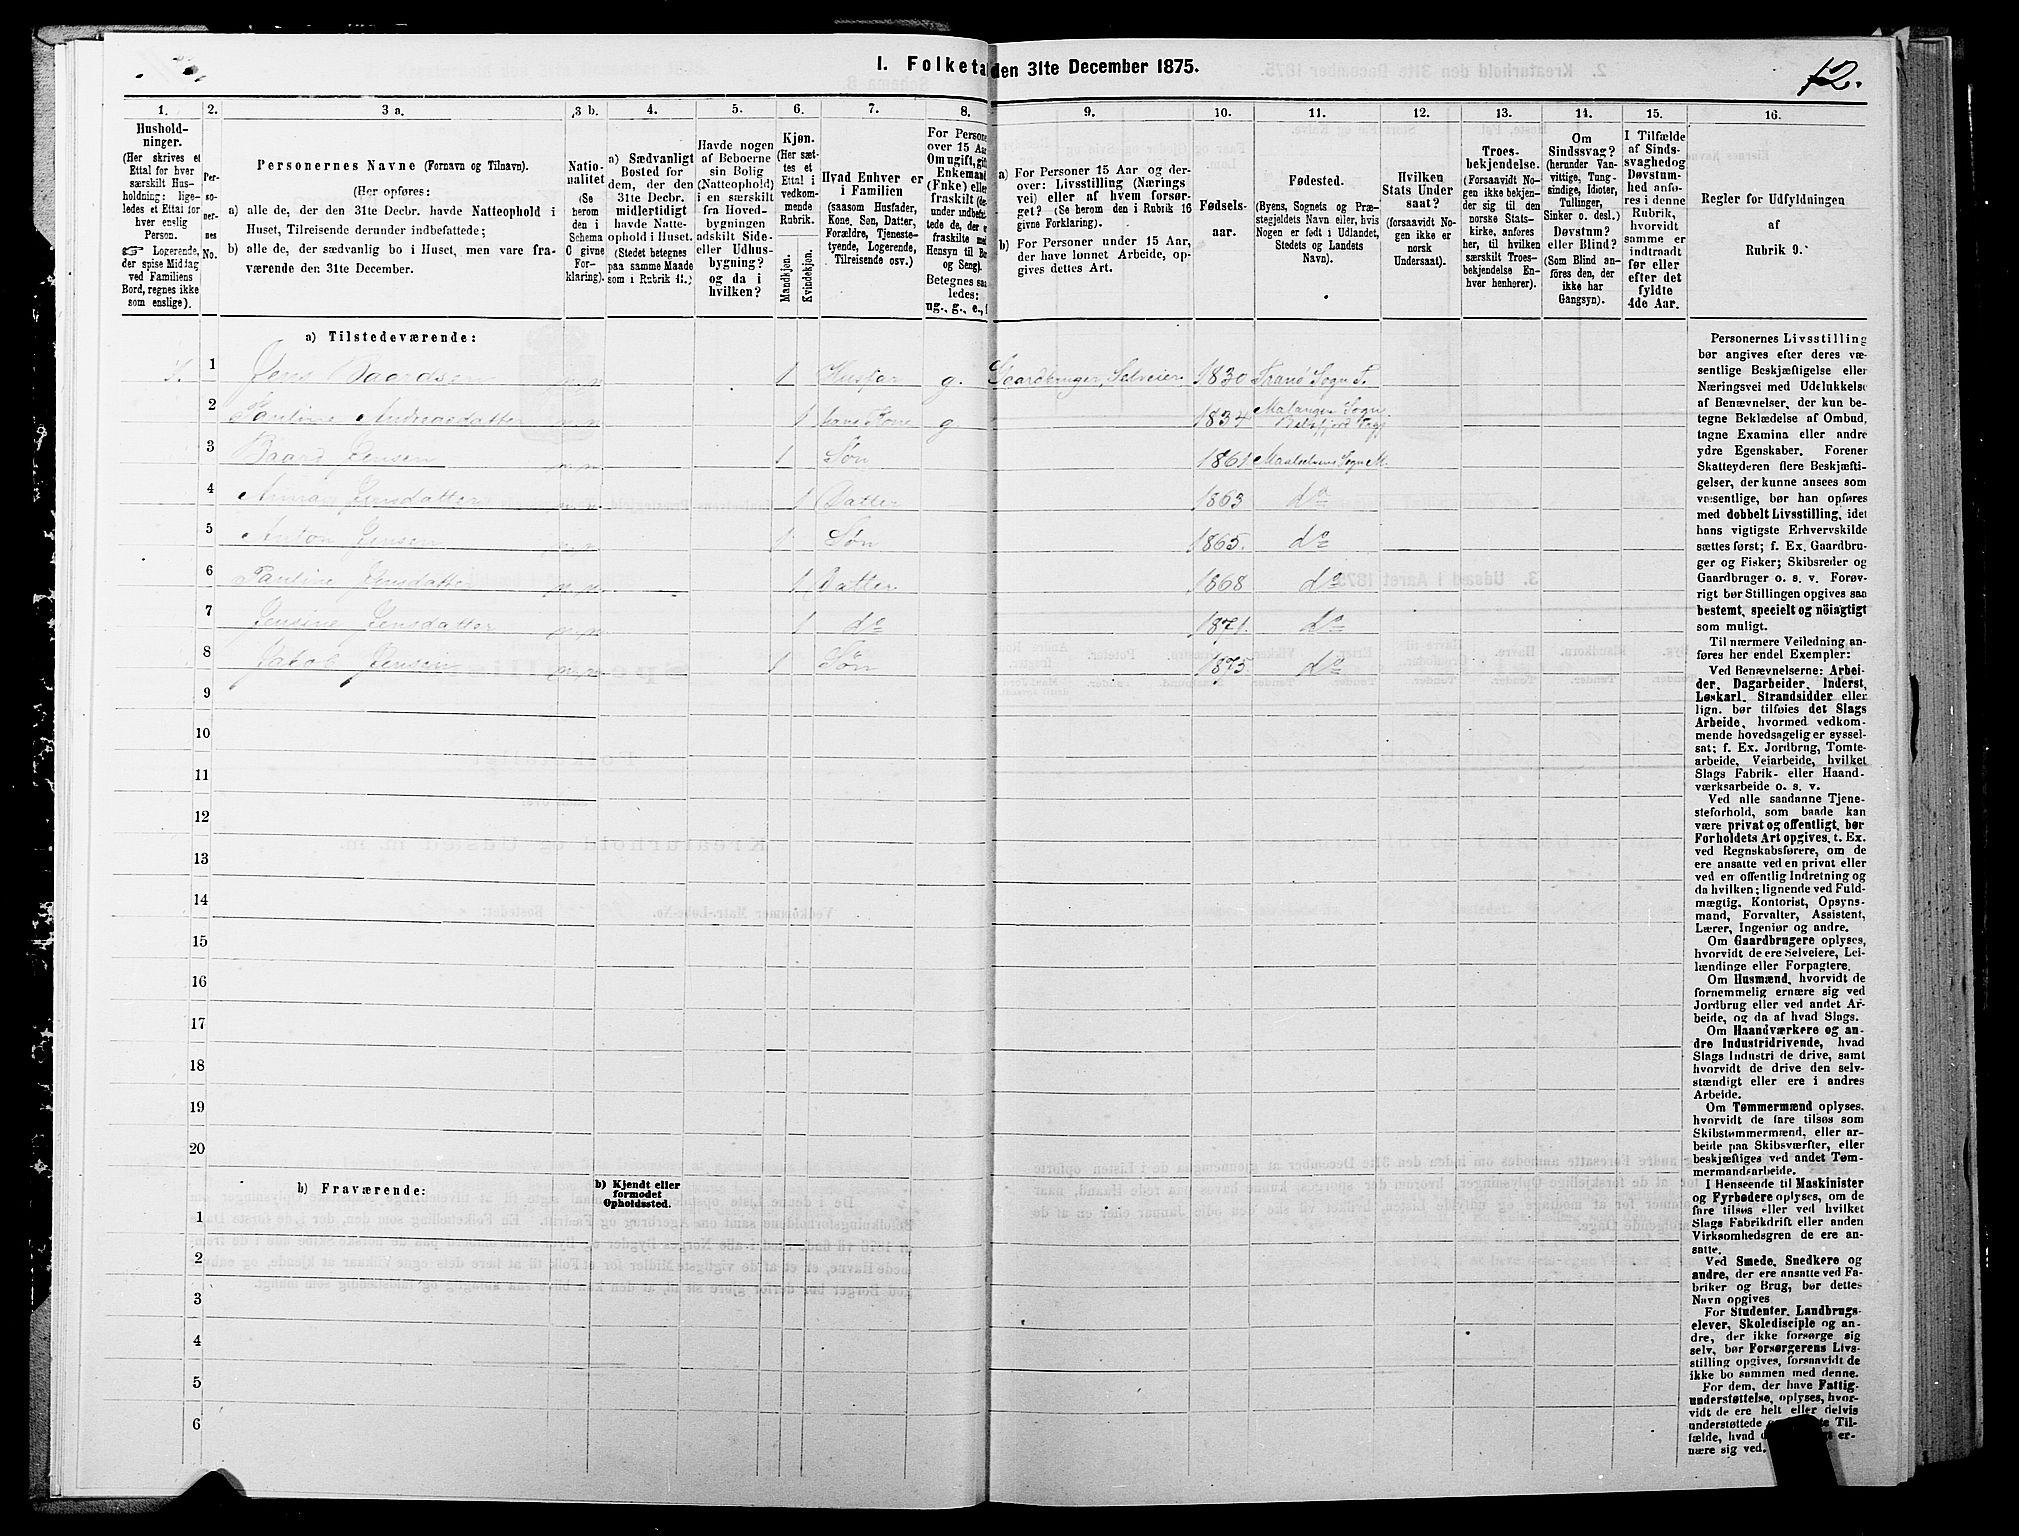 I. Folketa
den 31te December 1875.
12.
1.
Hushold-
ninger.
(Her skrives et
Ettal for hver
særskilt Hus-
holdning; lige-
ledes et Ettal for
hver enslig
Person.
☞ Logerende,
der spise Middag
ved Familiens
Bord, regnes ikke
som enslige).
2.
Per-
so-
ner-
nes
No.
3 a.
Personernes Navne (Fornavn og Tilnavn).
(Her opføres:
a) alle de, der den 31te Decbr. havde Natteophold i
Huset, Tilreisende derunder indbefattede;
b) alle de, der sædvanlig bo i Huset, men vare fra-
værende den 31te December.
3 b.
Natio-
nalitet
(Se
herom
den i
Schema
C givne
For-
klaring).
4.
a) Sædvanligt
Bosted for
dem, der den
31te Decbr.
midlertidigt
havde Natte-
ophold i Huset.
(Stedet betegnes
paa samme Maade
som i Rubrik 11.)
5.
Havde nogen
af Beboerne
sin Bolig
(Natteophold)
i en særskilt
fra Hoved-
bygningen
adskilt Side-
eller Udhus-
bygning?
og da i
hvilken?
6.
Kjøn.
(Her sæt-
tes et
Ettal i
vedkom-
mende
Rubrik.
Mandkjøn.
Kvindekjøn.
7.
Hvad Enhver er
i Familien
(saasom Husfader,
Kone, Søn, Datter,
Forældre, Tjeneste-
tyende, Logerende,
Tilreisende osv.).
8.
For Persone
over 15 Aa
Om ugift, gift
Enkemand
(Enke) elle
fraskilt (de
under indbefat
tede de, der e
fraskilte med
Hensyn til Bo
og Seng).
Betegnes saa
ledes:
ug., g., e., f
9.
a) For Personer 15 Aar og der-
over: Livsstilling (Nærings
vei) eller af hvem forsør-
get? (Se herom den i Rubrik 16
givne Forklaring).
b) For Personer under 15 Aar,
der have lønnet Arbeide, op-
gives dettes Art.
10.
Fødsels-
aar.
11.
Fødested.
(Byens, Sognets og Præ-
stegjeldets Navn eller, hvis
Nogen er født i Udlandet,
Stedets og Landets
Navn).
12.
Hvilken
Stats Under
saat?
(forsaavidt No-
gen ikke er
norsk
Undersaat).
13.
Troes-
bekjendelse.
(Forsaavidt No-
gen ikke bekjen-
der sig til den
norske Stats-
kirke, anføres
her, til hvilken
særskilt Troes-
bekjendelse En-
hver henhører).
14.
Om
Sindssvag?
(herunder Van-
vittige, Tung-
sindige, Idioter,
Tullinger,
Sinker o. desl.)
Døvstum?
eller Blind?
(Som Blind an-
føres den, der
ikke har
Gangsyn).
15.
I Tilfælde
af Sinds-
svaghed og
Døvstum-
hed anfø-
res i denne
Rubrik,
hvorvidt
samme er
indtraadt
før eller
efter det
fyldte
4de Aar.
16.
Regler for Udfyldningen
af
Rubrik 9.
a) Tilstedeværende:
1. 1 Jens Baardsen n.n 1 Husfar g. Gaardbruger, Selveier 1830 Tranø Sogn T.
2 Pauline Andreasdatter n.n 1 hans Kone g 1834 Malangen Sogn Balsfjord Prgj
3 Baard Jensen n.n 1 Søn 1861 Maalselvens Sogn M.
4 Anna Jensdatter n.n 1 Datter 1863 do
5 Anton Jensen n.n 1 Søn 1865. do
6 Pauline Jensdatter n.n 1 Datter 1868 do
7 Jensine Jensdatter n.n 1 do 1871. do
8 Jakob Jensen n.n 1 Søn 1875 do
9
10
11
12
13
14
15
16
17
18
19
20
b) Fraværende:
b) Kjendt eller
formodet
Opholdssted.
1
2
3
4
5
6
Personernes Livsstilling
bør angives efter deres væ-
sentlige Beskjæftigelse eller
Næringsvei med Udelukkelse
af Benævnelser, der kun be-
tegne Beklædelse af Ombud,
tagne Examina eller andre
ydre Egenskaber. Forener
Skatteyderen flere Beskjæfti-
gelser, der kunne ansees som
væsentlige, bør han opføres
med dobbelt Livsstilling, idet
hans vigtigste Erhvervskilde
sættes først; f. Ex. Gaardbru-
ger og Fisker; Skibsreder og
Gaardbruger o. s. v. Forøv-
rigt bør Stillingen opgives saa
bestemt, specielt og nöiagtigt
som muligt.
Til nærmere Veiledning an-
føres her endel Exempler:
Ved Benævnelserne: Arbei-
der, Dagarbeider, Inderst,
Løskarl, Strandsidder eller
lign. bør tilføies det Slags
Arbeide, hvormed vedkom-
mende hovedsagelig er syssel-
sat; f. Ex. Jordbrug, Tomte-
arbeide, Veiarbeide, hvilket
Slags Fabrik- eller Haand-
værksarbeide o. s. v.
Ved alle saadanne Tjene-
steforhold, som baade kan
være privat og offentligt, bør
Forholdets Art opgives, t. Ex.
ved Regnskabsførere, om de
ere ansatte ved en privat eller
ved en offentlig Indretning og
da hvilken; lignende ved Fuld-
mægtig, Kontorist, Opsyns-
mand, Forvalter, Assistent,
Lærer, Ingeniør og andre.
Om Gaardbrugere oplyses,
hvorvidt de ere Selveiere, Lei-
lændinge eller Forpagtere.
Om Husmænd, hvorvidt de
fornemmelig ernære sig ved
Jordbrug eller ved andet Ar-
beide, og da af hvad Slags.
Om Haandværkere og an-
dre Industridrivende, hvad
Slags Industri de drive, samt
hvorvidt de drive den selv-
stændigt eller ere i andres
Arbeide.
Om Tømmermænd oplyses,
hvorvidt de fare tilsøs som
Skibstømmermænd, eller ar-
beide paa Skibsværfter, eller
beskjæftiges ved andet Tøm-
mermandsarbeide.
I Henseende til Maskinister
og Fyrbødere oplyses, om de
fare tilsøs eller ved hvilket
Slags Fabrikdrift eller anden
Virksomhedsgren de ere an-
satte.
Ved Smede, Snedkere og
andre, der ere ansatte ved Fa-
briker og Brug, bør dettes
Navn opgives
For Studenter, Landbrugs-
elever, Skoledisciple og an-
dre, der ikke forsørge sig
selv, bør Forsørgerens Livs-
stilling opgives, forsaavidt de
ikke bo sammen med denne.
For dem, der have Fattig-
understøttelse, oplyses, hvor-
vidt de ere helt eller delvis
understøttede
Til-
fælde, hvad
er-
nære sig ved.